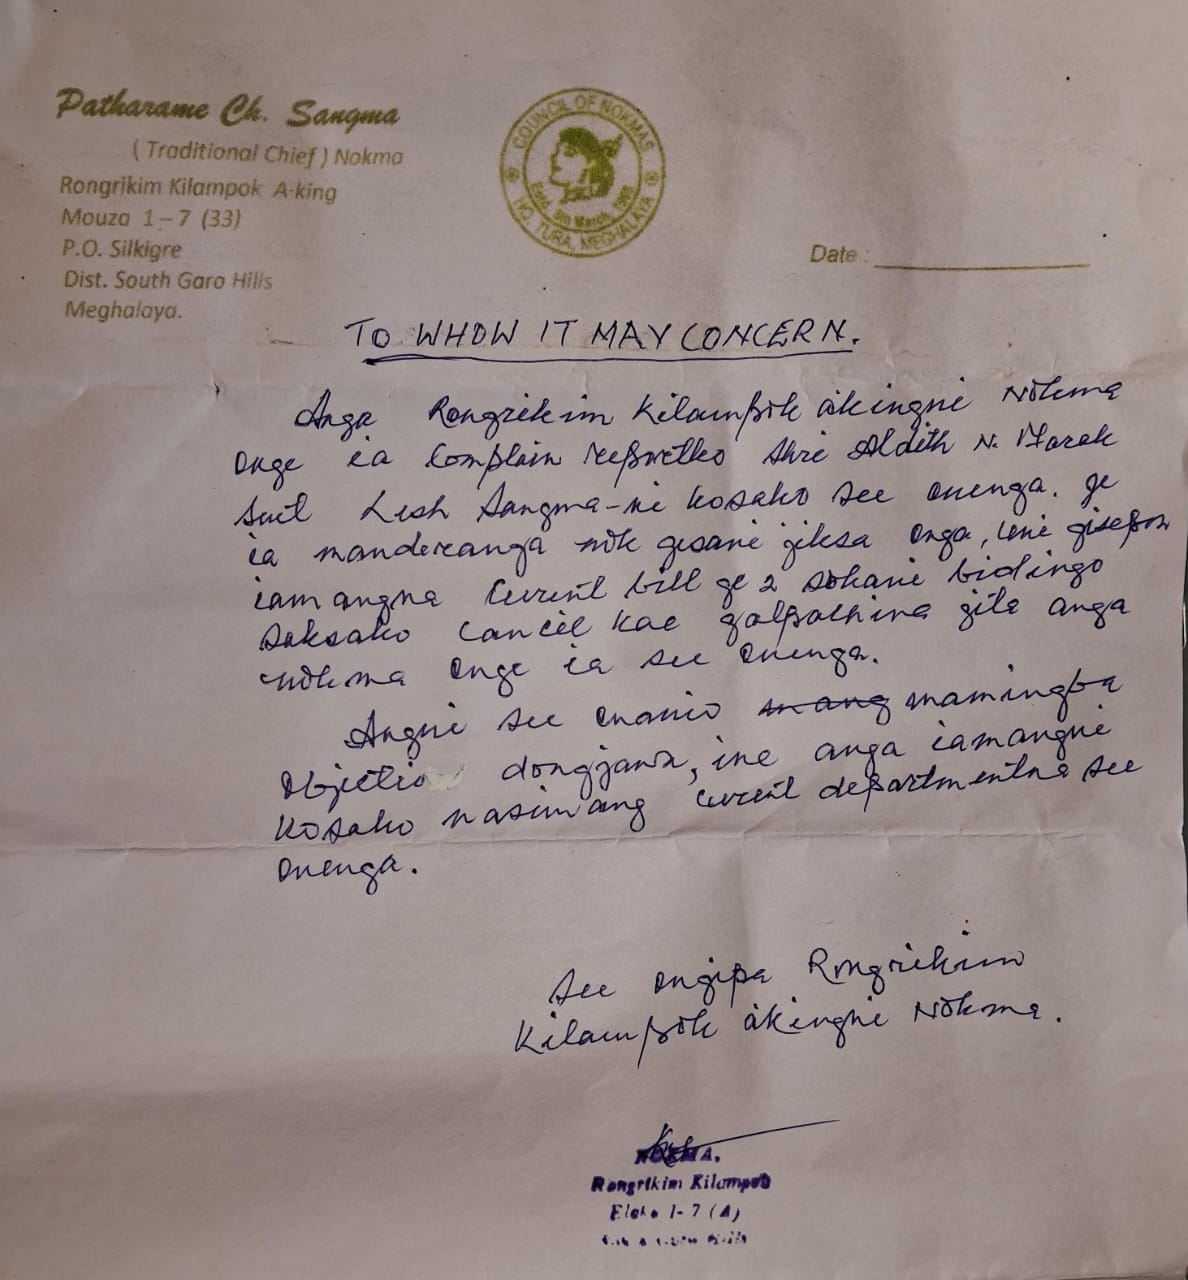 Patharame Ch. Sangma
( Traditional Chief ) Nokma
Rongrikim Kilampok A-king
Mouza 1 – 7 (33)
P.O. Silkigre
Dist. South Garo Hills
Meghalaya.
COUNCIL OF NOKMAS
Estd. 8th March
HQ. TURA, MEGHALAYA
Date :
TO WHOW IT MAY CONCERN.
Anga Rongrikim Kilampok a·kingni Nokma
onge ia Complain Shri Aldith N. Marak
Lesh Sangma-ni kosako see onenga. ge
ia manderanga nok gisani jiksa onga, uni
iamangna Current bill ge 2 sokani bidingo
saksako cancil kae galpachina gita anga
nokma onge ia see onenga.
Angni see onanio mamingba
Objectio dongjawa, ine anga iamangni
kosako nasimang current departmentna see
onenga.
See ongipa Rongrikim
Kilampok a·kingni Nokma.
NOKMA.
Rongrikim Kilampok
Elaka 1-7 (A)